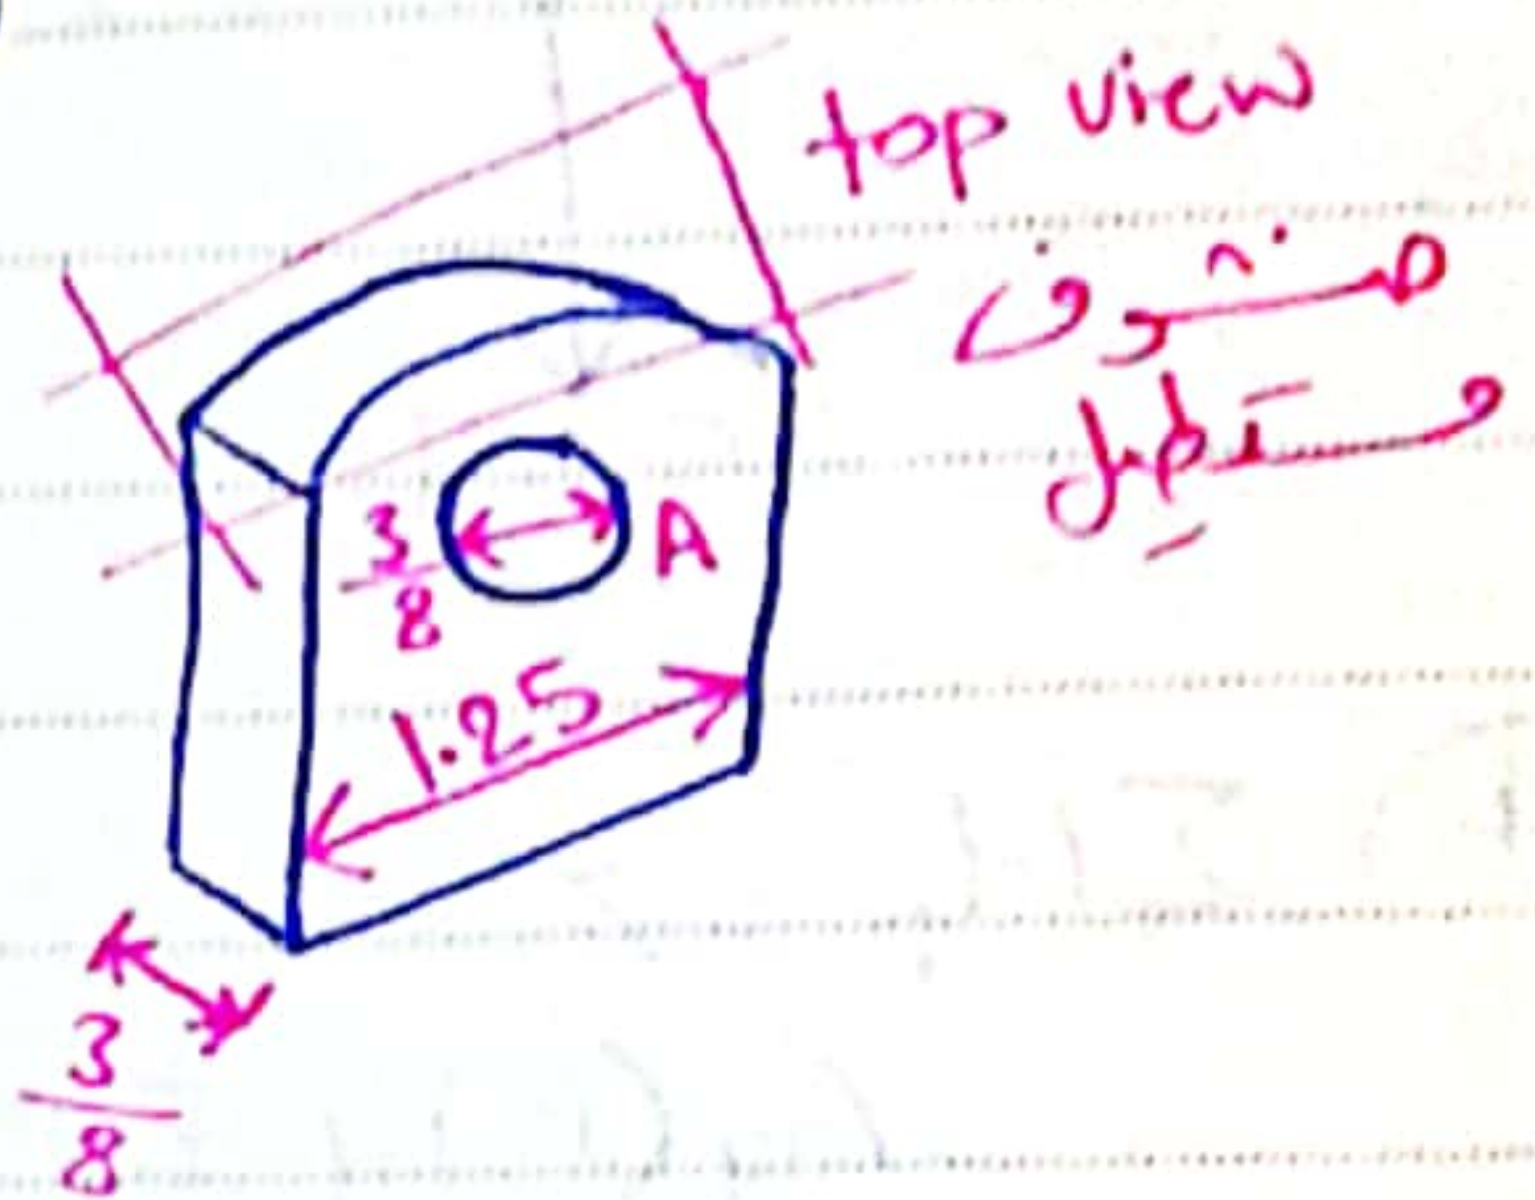 top view
هنشوف
مستطيل
3/8
A
1.25
3/8